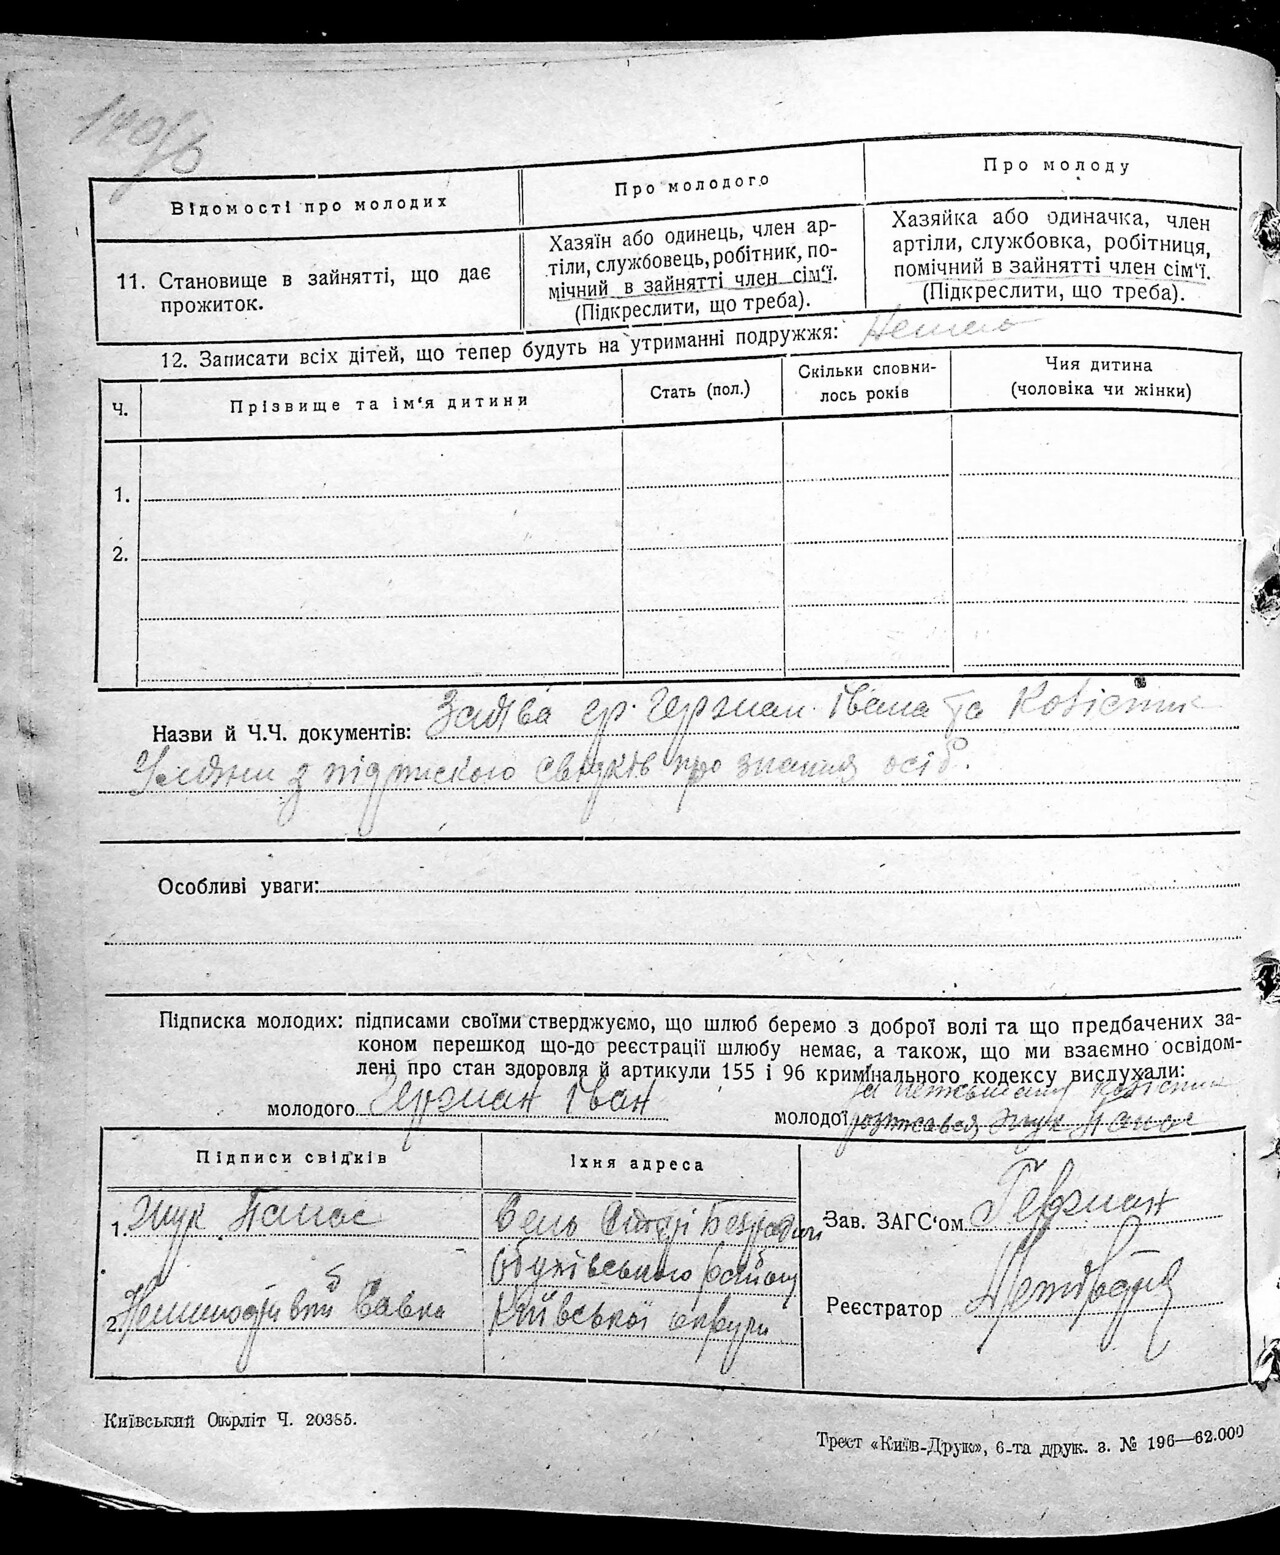 140/б
Відомості про молодих
Про молодого
Про молоду
11. Становище в зайнятті, що дає
прожиток.
Хазяїн або одинець, член ар-
тіли, службовець, робітник, по-
мічний в зайнятті член сім'ї.
(Підкреслити, що треба).
Хазяйка або одиначка, член
артіли, службовка, робітниця,
помічний в зайнятті член сім'ї.
(Підкреслити, що треба).
12. Записати всіх дітей, що тепер будуть на утриманні подружжя:
Ч.
Прізвище та ім'я дитини
Стать (пол.)
Скільки сповни-
лось років
Чия дитина
(чоловіка чи жінки)
1.
2.
Назви й Ч.Ч. документів: Заява гр. Герман Івана та
Уляни з підпискою свідків про знання осіб.
Особливі уваги:
Підписка молодих: підписами своїми стверджуємо, що шлюб беремо з доброї волі та що предбачених за-
коном перешкод що-до реєстрації шлюбу немає, а також, що ми взаємно освідом-
лені про стан здоровля й артикули 155 і 96 кримінального кодексу вислухали:
молодого Герман Іван
за неписьменну
молодої розписався Жук Панас
Підписи свідків
Їхня адреса
1. Жук Панас
Село Старі Безрадичі
Обухівського району
2. Савка
Київської округи
Зав. ЗАГС'ом Герман
Реєстратор
Київський Окрліт Ч. 20385.
Трест «Київ-Друк», 6-та друк. з. № 196—62.000